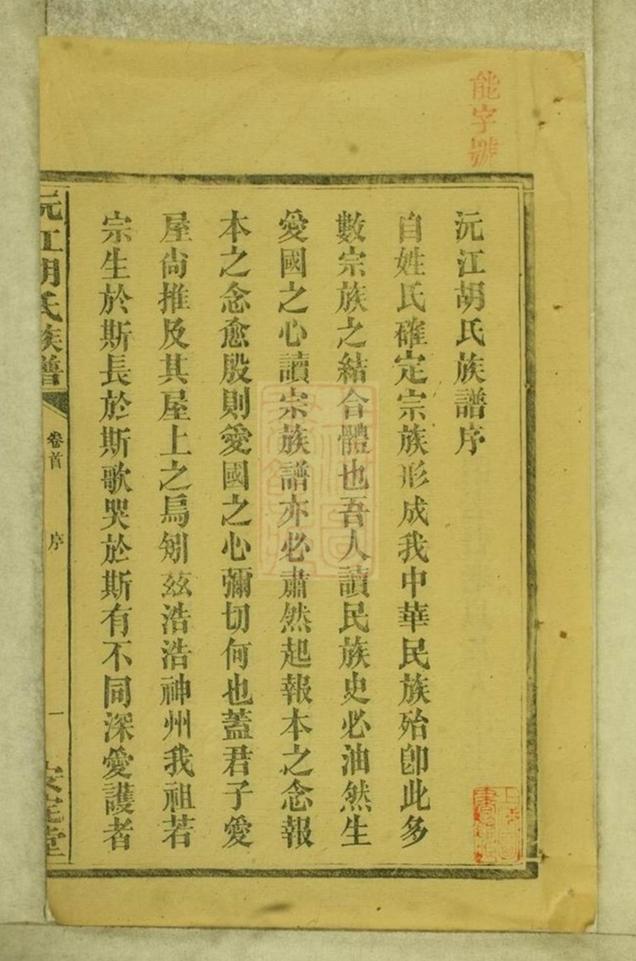 能字號
沅江胡氏族譜序
自姓氏確定宗族形成我中華民族殆卽此多
數宗族之結合體也吾人讀民族史必油然生
愛國之心讀宗族譜亦必肅然起報本之念報
本之念愈殷則愛國之心彌切何也蓋君子愛
屋尙推及其屋上之烏矧玆浩浩神州我祖若
宗生於斯長於斯歌哭於斯有不同深愛護者
沅江胡氏族譜
卷首
序
一
安定堂